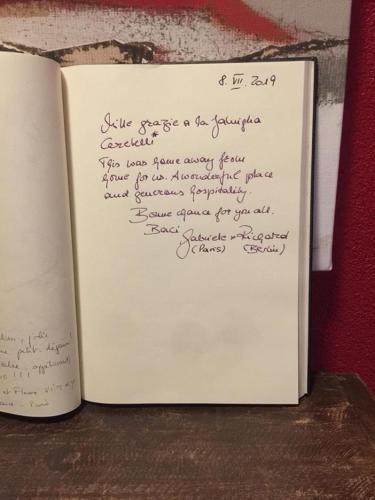 8. VII. 2019
Mille grazie a la famiglia
Ceretelli*
This was home away from
home for us. A wonderful place
and generous hospitality.
Bonne chance for you all.
Baci
Gabriele + Richard
(Paris) (Berlin)
petit
Paris